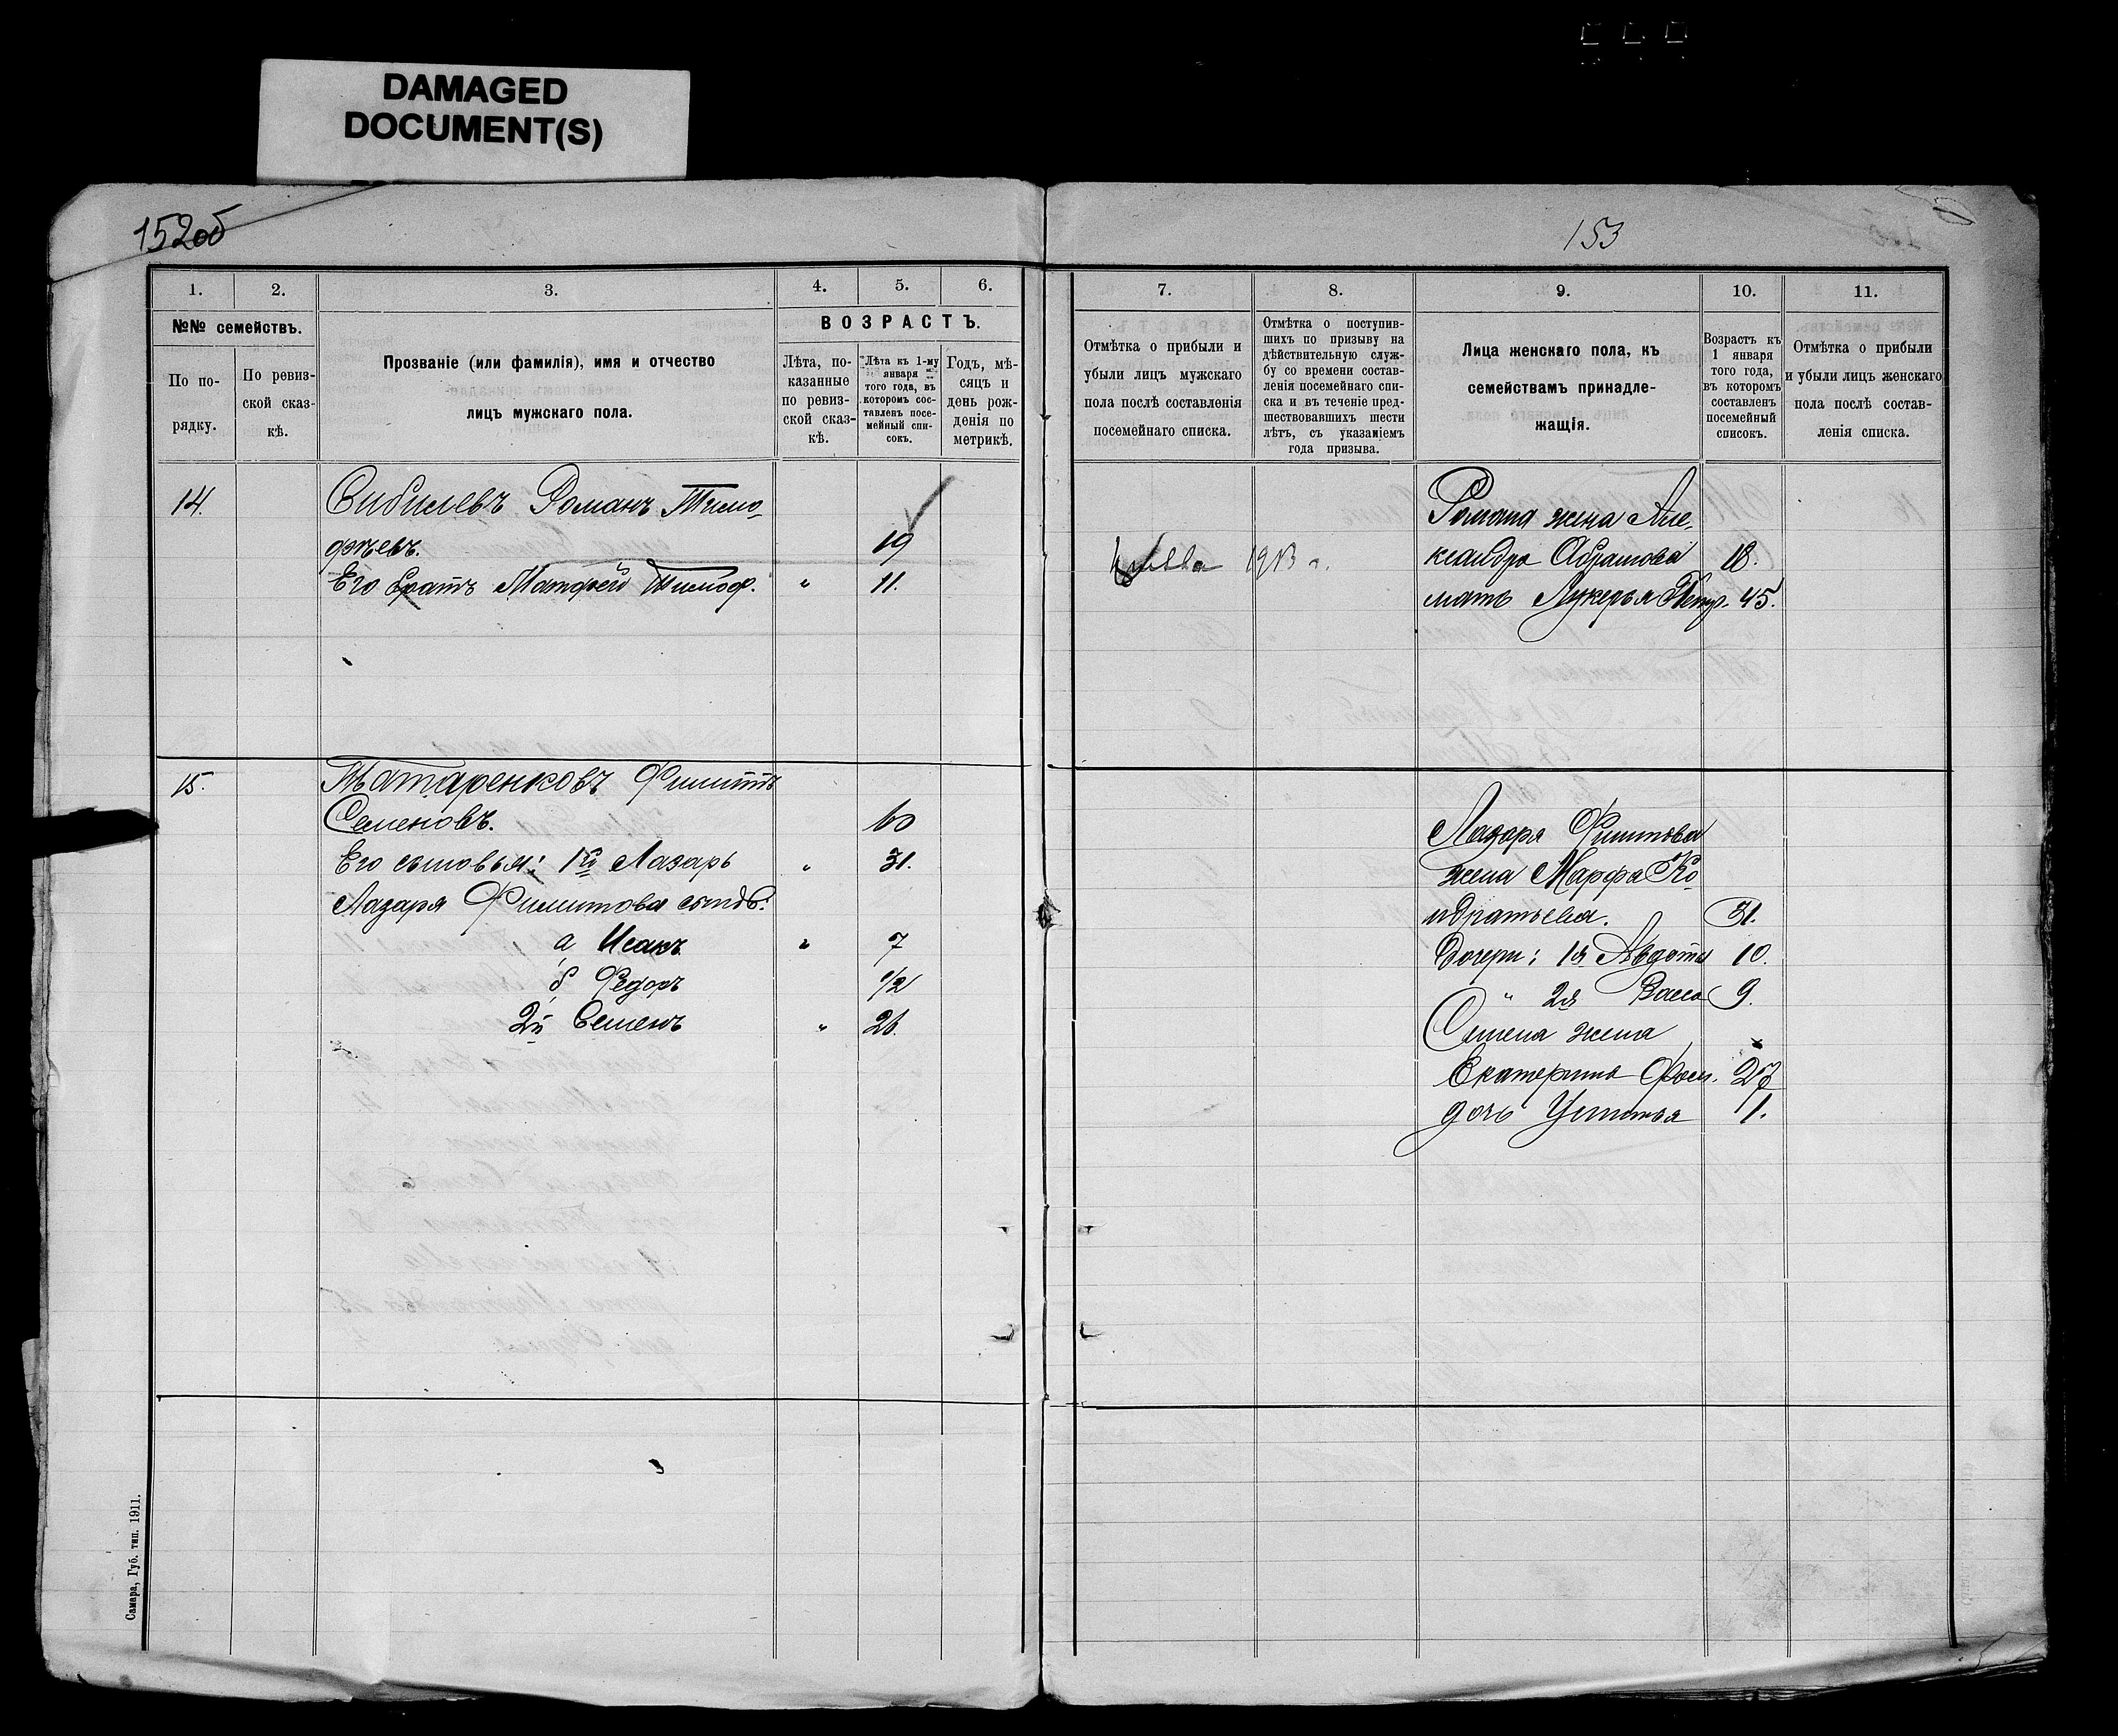 DAMAGED
DOCUMENT(S)
152об
1.
2.
3.
4.
5.
6.
№№ семействъ.
По по-
рядку.
По ревиз-
ской сказ-
кѣ.
Прозваніе (или фамилія), имя и отчество
лицъ мужскаго пола.
ВОЗРАСТЪ.
Лѣта, по-
казанные
по ревиз-
ской сказ-
кѣ.
Лѣта къ 1-му
января
того года, въ
которомъ сос-
тавленъ посе-
мейный спи-
сокъ.
Годъ, мѣ-
сяцъ и
день рож-
денія по
метрикѣ.
14. Сибилевъ Романъ Тимо-
фѣевъ. 19
Его братъ Матфей Тимоф. " 11.
15. Татаренковъ Филиппъ
Семеновъ. 60
Его сыновья: 1й Лазарь " 31.
Лазаря Филиппова сынов.
а, Исакъ " 7
б, Федоръ 1/2
2й Семенъ " 26.
Самара, Губ. тип. 1911.
153
7.
8.
9.
10.
11.
Отмѣтка о прибыли и
убыли лицъ мужскаго
пола послѣ составленія
посемейнаго списка.
Отмѣтка о поступив-
шихъ по призыву на
дѣйствительную служ-
бу со времени состав-
ленія посемейнаго спи-
ска и въ теченіе пред-
шествовавшихъ шести
лѣтъ, съ указаніемъ
года призыва.
Лица женскаго пола, къ
семействамъ принадле-
жащія.
Возрастъ къ
1 января
того года,
въ которомъ
составленъ
посемейный
списокъ.
Отмѣтка о прибыли
и убыли лицъ женскаго
пола послѣ состав-
ленія списка.
Романа жена Але-
1913 г. ксандра Абрамова 18.
мать Лукерья Петр. 45.
Лазаря Филиппова
жена Марфа Ко
ндратьева. 31.
Дочери: 1я Авдотья 10.
" 2я Васса 9.
Семена жена
Екатерина Фом. 27
дочь Устинья 1.